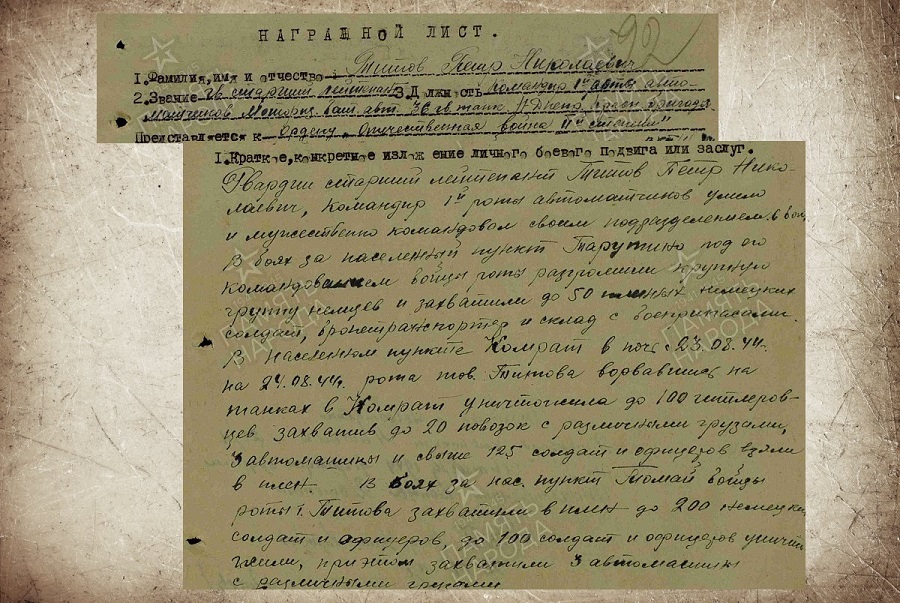 НАГРАДНОЙ ЛИСТ.
92
1.Фамилия,имя и отчество Титов Петр Николаевич
2.Звание гв старший лейтенант 3.Должность командир 1й роты авто-
матчиков Моториз. бат. авт. 36 гв танк. Н-Днепр. Красн. бригады
Представляется к Ордену „Отечественная война IIй степени"
I.Краткое,конкретное изложение личного боевого подвига или заслуг.
Гвардии старший лейтенант Титов Петр Нико-
лаевич, командир 1й роты автоматчиков умело
и мужественно командовал своим подразделением. в
В боях за населенный пункт Тарутино под его
командованием бойцы роты разгромили крупную
группу немцев и захватили до 50 пленных немецких
солдат, бронетранспортер и склад с боеприпасами.
В населенном пункте Комрат в ночь с 23.08.44.
на 24.08.44г. рота тов. Титова ворвавшись на
танках в Комрат уничтожила до 100 гитлеров-
цев захватив до 20 повозок с различными грузами,
3 автомашины и свыше 125 солдат и офицеров взяли
в плен. В боях за нас. пункт Томай бойцы
роты т. Титова захватили в плен до 200 немецких
солдат и офицеров, до 100 солдат и офицеров уничто
жили, при этом захватили 3 автомашины
с различными грузами
ПАМЯТЬ НАРОДА
ПАМЯТЬ НАРОДА
ПАМЯТЬ НАРОДА